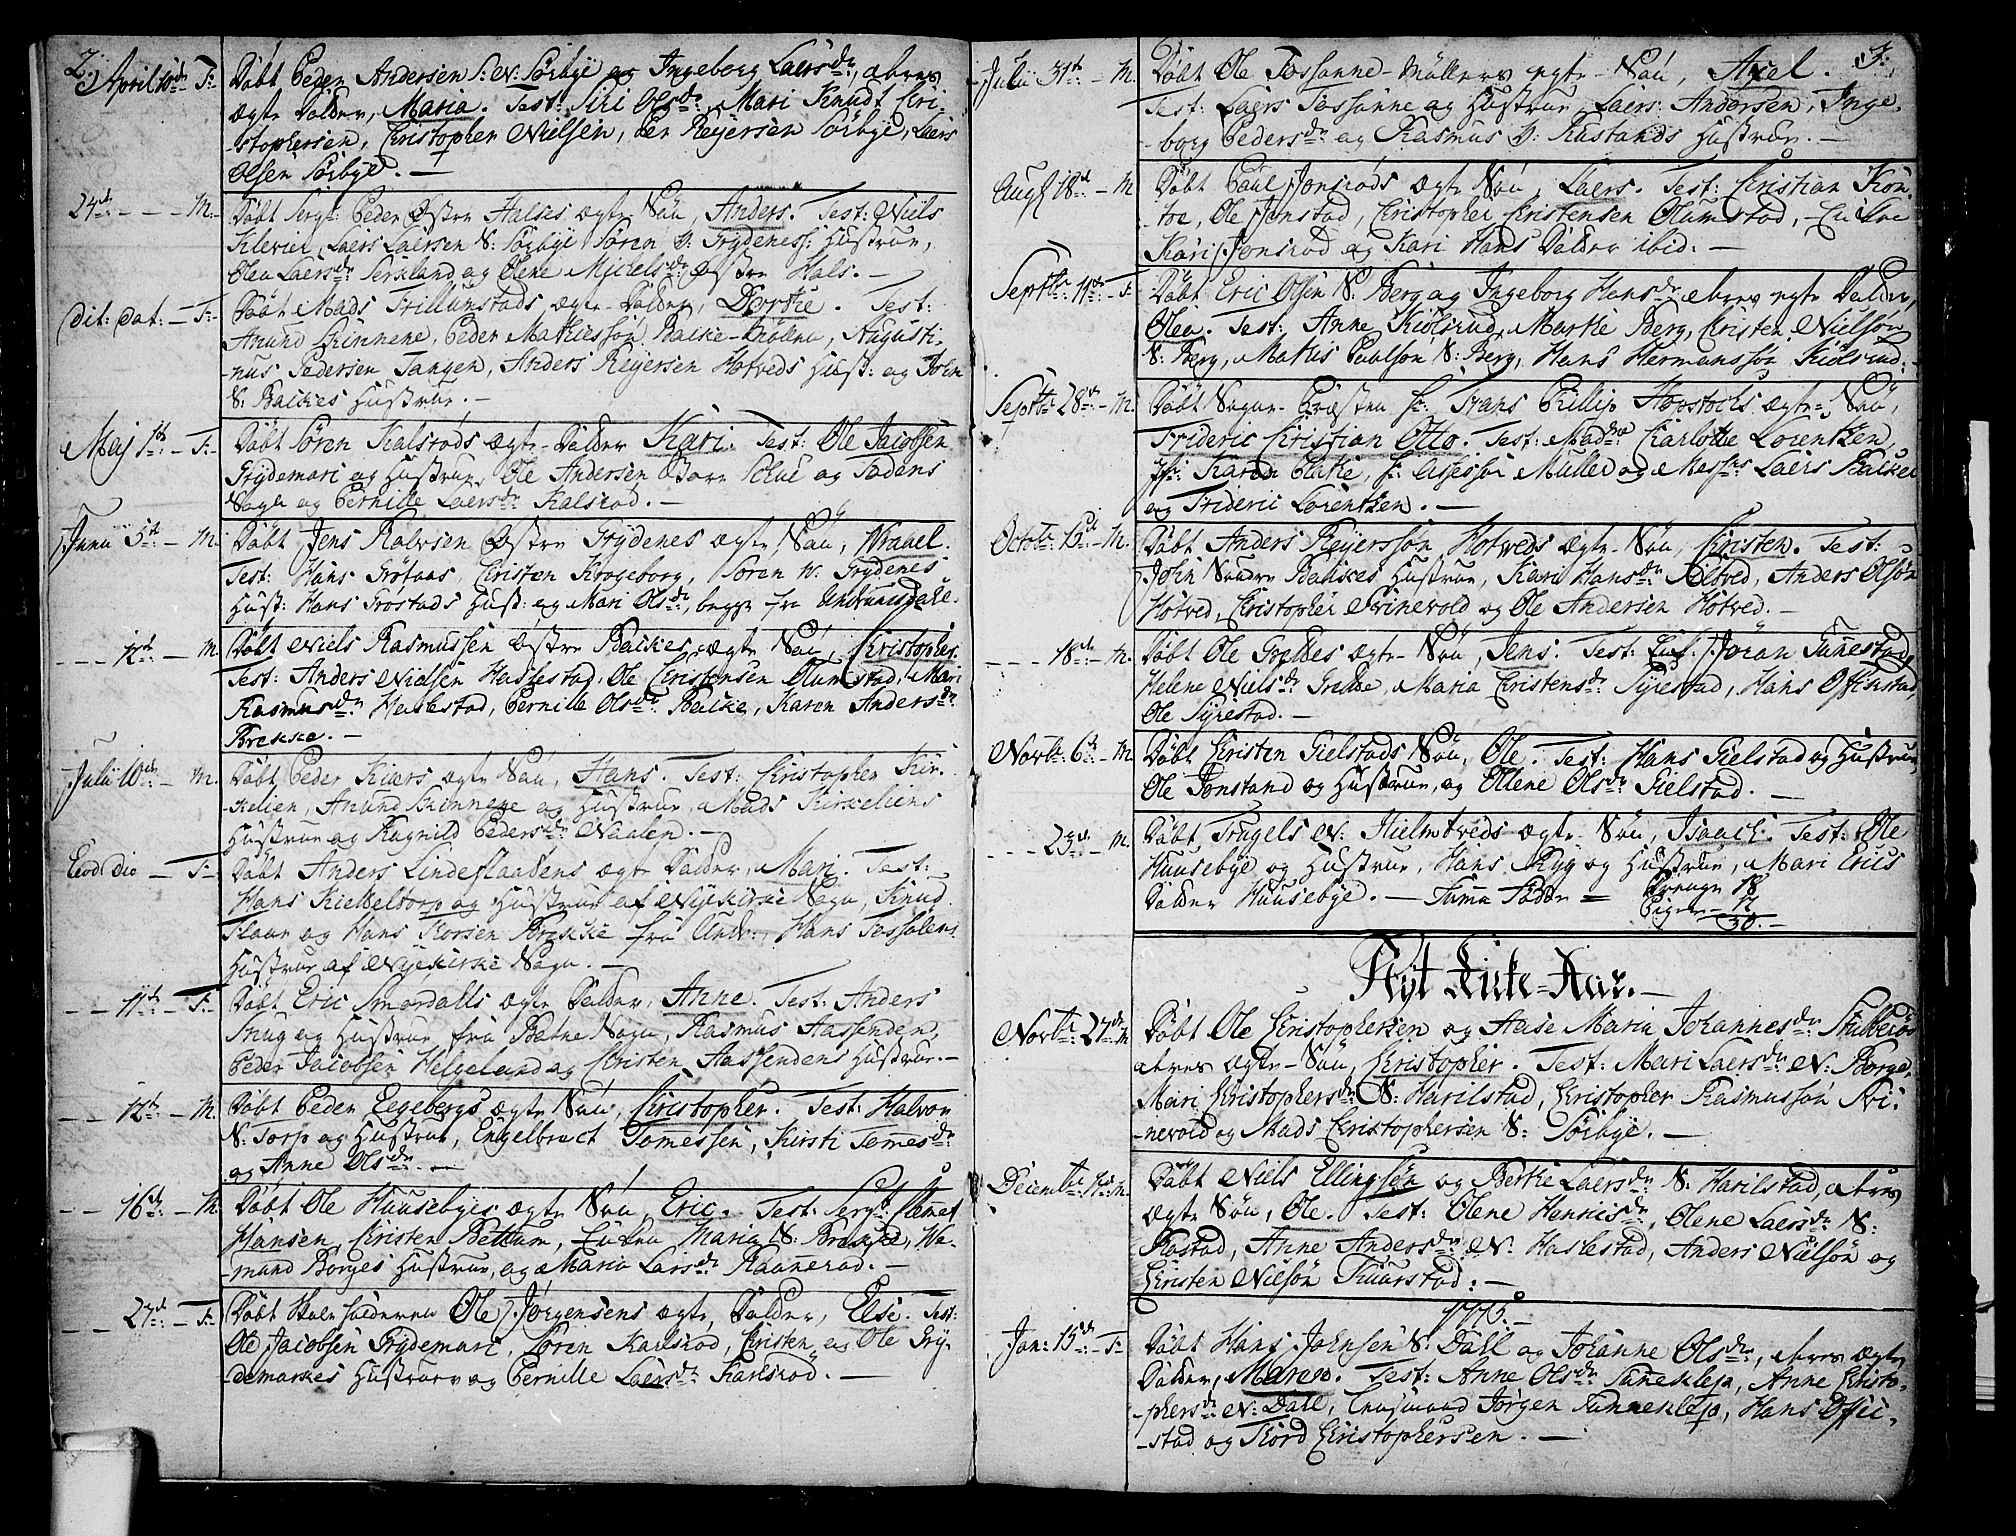 2.
April 10de: - F:- Døbt Peder Andersen S: N: Sørbye og Ingeborg Laersdr:, abres
ægte Dalder, Maria. Test: Siri Olsdr:, Mari Knudt Cri-
-stophersen, Christopher Nielsen, Peer Reyersen Sørbye, Laers
Olsen Sørbye. -
24de: - - - M:- Døbt Sergt: Peder Østre Halses ægte Søn, Anders. Test: Niels
Klevier, Laers Laersen N: Sørbye, Søren Grydeness: Hustrue,
Olea Laersdr: og Olene Michelsdr: Østre Hals. -
Dit: dat: - F:- Døbt Mads Trillumstads ægte Dalder, Dorthe. Test:
Anund Skinnene, Peder Mathiessøn Balke, Augusti-
-nus Pedersen Tangen, Anders Reyersen Hotveds Hust: og John
N: Balkes Hustrue. -
Maj 1de: - F:- Døbt Søren Kalsrøds ægte Dalder Kari. Test: Ole Jacobsen
Grydemari og Hustrue, Ole Andersen og
Sogn og Pernille Laersdr: Kalsrød. -
Junii 5te: - M: Døbt Jens Halvsen Østre Grydenes ægte Søn,
Test: Hans Grøtaas, Christen Krogeborg, Søren W: Grydenes
Hust: Hans Trøstads Hust: og Mari Olsdr:, begge fra
- - - 12te: - M. Døbt Niels Rasmussen Østre Balkes ægte Søn, Christopher.
Test: Anders Nielsen Haslestad, Ole Christensen Olumstad, Mari
Rasmusdr: Haslestad, Pernille Olsdr: Balke, Karen Andersdr:
Brekke. -
Julii 10de: - M. Døbt Peder Kiærs ægte Søn, Hans. Test: Christopher Kir-
kelien, Anund Skinnene og Hustrue, Mads Kirkeliens
Hustrue og Ragnild Pedersdr: Naalen. -
Eod: die - F:- Døbt Anders Lindeflaadens ægte Dalder, Mari. Test:
Hans Kieldeltorp og Hustrue af Nyekirke Sogn, Knud
Flaar og Hans Korsen Brekke fra Undr:, Hans
Hustrue af Nyekirke Sogn. -
- - 11te: - F:- Døbt Eric Smørdalls ægte Dalder, Anne. Test: Anders
Snug og Hustrue fra Botne Sogn, Rasmus Aassenden,
Peder Jacobsen Helgeland og Christen Aassendens Hustrue. -
- - 12te: - M Døbt Peder Eegebergs ægte Søn, Christopher. Test: Halvor
N: Torp og Hustrue, Engelbrect Tomessen, Kirsti Tomesdr:
og Anne Olsdr: -
- - 16de: - M Døbt Ole Huusebyes ægte Søn, Eric. Test: Sergt:
Hansen, Christen Bettum, Maria N: Brekke,
-mund Borges Hustrue, og Maria Larsdr: Raanerød. -
- - 27de: - F:- Døbt Ole Jørgensens ægte Dalder, Else. Test:
Ole Jacobsen Grydemari, Søren Karlsrød, Christen og Ole Gry-
demarkes Hustruer og Pernille Laersdr: Karlsrød. -
3.
Julii 31te - M. Døbt Ole Fossanne-Møllers ægte Søn, Axel.
Test: Laers Fossanne og Hustrue, Laers Andersen, Inge-
borg Pedersdr: og Rasmus Hustrue. -
Augt 18de - M Døbt Paul Jonsrøds ægte Søn, Laers. Test: Christian
Ole Jonstad, Christopher Christensen Olumstad,
Kari Jonsrød og Kari Hans Dalder ibid: -
Septbr: 11te: - F Døbt Eric Olsen N: Berg og Ingeborg Hansdr: abres ægte Dalder,
Olea. Test: Anne Kiølsrud, Marthe Berg, Christen Nielsøn
N: Berg, Mathis Paulsøn N: Berg, Hans Hermanssøn Kiølsrud:
Septbr: 28de - M. Døbt Sogne-Præsten Hr: Frans Phillip Hopstocks ægte Søn,
Frideric Christian Otto. Test: Madme Charlotte Lorentzen,
Karen Plathe, Hr: Assessor Müller og Laers Balke
og Frideric Lorentzen. -
Octob: 12te - M. Døbt Anders Reyerssøn Hotveds ægte Søn, Christen. Test:
John Søndre Balkes Hustrue, Kari Hansdr: Hotved, Anders Olsøn
Hotved, Christopher Svinevold og Ole Andersen Hotved. -
- - - 18de - M. Døbt Ole Grettes ægte Søn, Jens. Test: Jøran Funestad,
Helene Nielsdr: Maria Christensdr: Syrestad, Hans Offinstad,
Ole Syrestad. -
Novbr: 6te: - M Døbt Christen Gielstads Søn, Ole. Test: Hans Gielstad og Hustrue,
Ole Jonstand og Hustrue, og Ollene Olsdr: Gielstad. -
- - - 23de: - M. Døbt Trugels N: Hielmtveds ægte Søn, Isaach. Test: Ole
Huusebye og Hustrue, Hans Ryg og Hustrue, Mari Erics
Dalder Huusebye. - Summa Fødde = Drenge 18
Piger - 12
30. -
Nyt Kirke-Aar. -
Novbr: 27de: M Døbt Ole Christophersen og Aase Maria Johannesdr: Stubberød
abres ægte Søn, Christopher. Test: Mari Laersdr: N: Borge,
Mari Christophersdr: N: Harilstad, Christopher Rasmussøn Svi-
-nevold og Mads Christophersen N: Sørbye. -
Decembr: M. Døbt Niels Ellingsøn og Berthe Laersdr: N: Harilstad, abres
ægte Søn, Ole. Test: Olene Henrisdr:, Olene Laersdr: N:
Rostad, Anne Andersdr: N: Haslestad, Anders Nielsøn og
Christen Nielsøn Fuurstad: -
1775. -
Jan: 15de: - F: Døbt Hans Johnsen N: Dall og Johanne Olsdr:, abres ægte
Dalder, Maren. Test: Anne Olsdr: Funekleja, Anne Christo-
-phersdr: N: Dall, Jørgen Funnekleja, Hans Offin-
-stad og Thord Christophersen. -